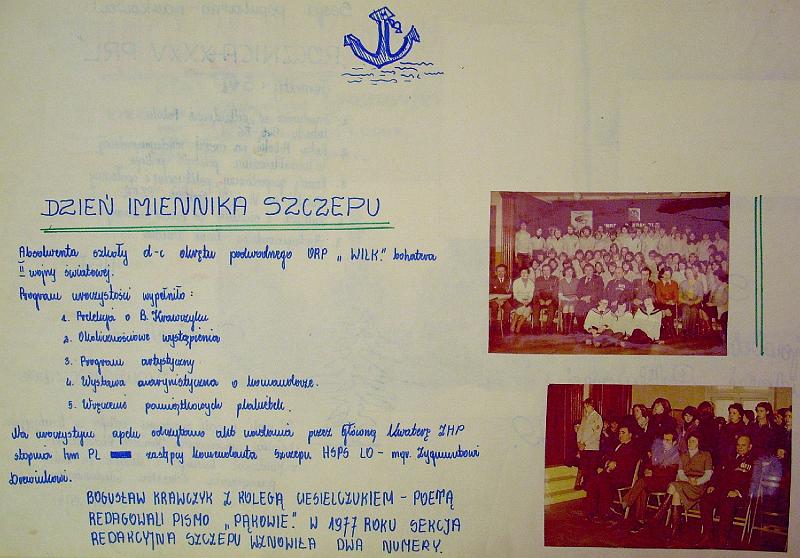 DZIEŃ IMIENNIKA SZCZEPU
Absolwenta szkoły d-c okrętu podwodnego ORP „WILK." bohatera
II wojny światowej.
Program uroczystości wypełniło:
1. Prelekcja o B. Krawczyku
2. Okolicznościowe wystąpienia
3. Program artystyczny
4. Wystawa marynistyczna o komandorze.
5. Wręczenie pamiątkowych plakietek.
Na uroczystym apelu odczytano akt nadania przez Główną Kwaterę ZHP
stopnia hm PL zastępcy komendanta Szczepu HSPS LO - mgr. Zygmuntowi
Drewnikowi.
BOGUSŁAW KRAWCZYK Z KOLEGĄ WESIELCZUKIEM - POETĄ
REDAGOWALI PISMO „PĄKOWIE." W 1977 ROKU SEKCJA
REDAKCYJNA SZCZEPU WZNOWIŁA DWA NUMERY.